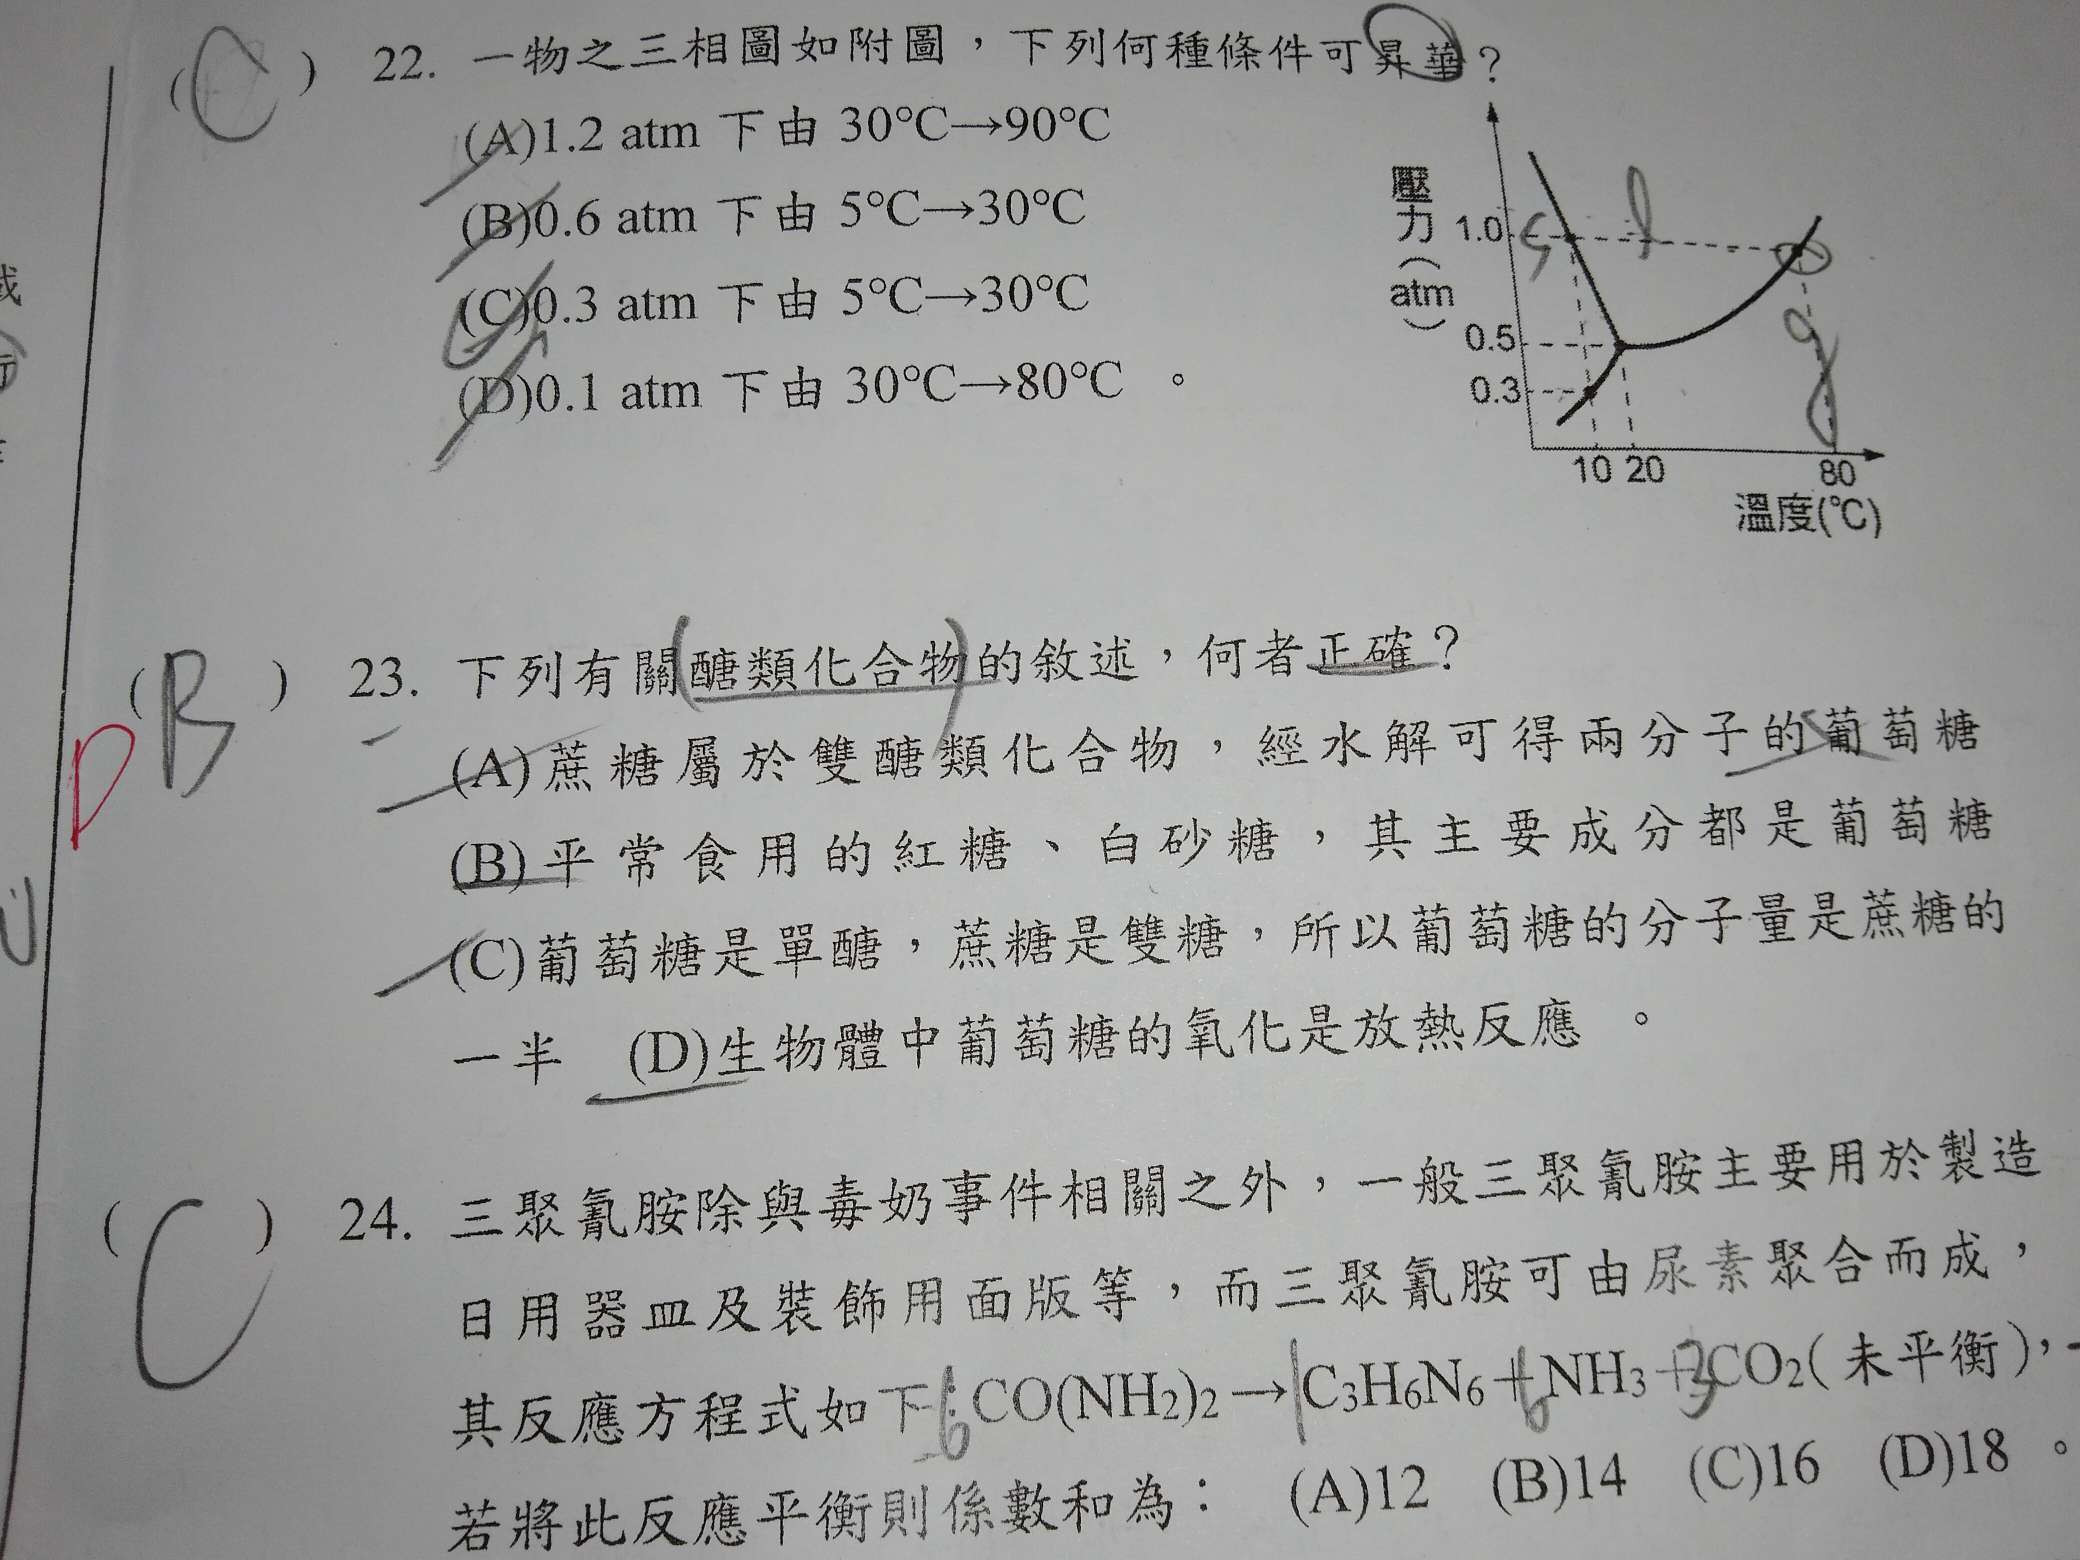 (C) 22. 一物之三相圖如附圖，下列何種條件可昇華？
(A)1.2 atm 下由 30°C→90°C
(B)0.6 atm 下由 5°C→30°C
(C)0.3 atm 下由 5°C→30°C
(D)0.1 atm 下由 30°C→80°C 。
壓力(atm)
1.0 s l
0.5 g
0.3
10 20 80
溫度(°C)
(B) 23. 下列有關(醣類化合物)的敘述，何者正確？
D
(A)蔗糖屬於雙醣類化合物，經水解可得兩分子的葡萄糖
(B)平常食用的紅糖、白砂糖，其主要成分都是葡萄糖
(C)葡萄糖是單醣，蔗糖是雙糖，所以葡萄糖的分子量是蔗糖的
一半 (D)生物體中葡萄糖的氧化是放熱反應 。
(C) 24. 三聚氰胺除與毒奶事件相關之外，一般三聚氰胺主要用於製造
日用器皿及裝飾用面版等，而三聚氰胺可由尿素聚合而成，
其反應方程式如下：6CO(NH2)2→1C3H6N6＋6NH3＋3CO2(未平衡)，
若將此反應平衡則係數和為： (A)12 (B)14 (C)16 (D)18 。